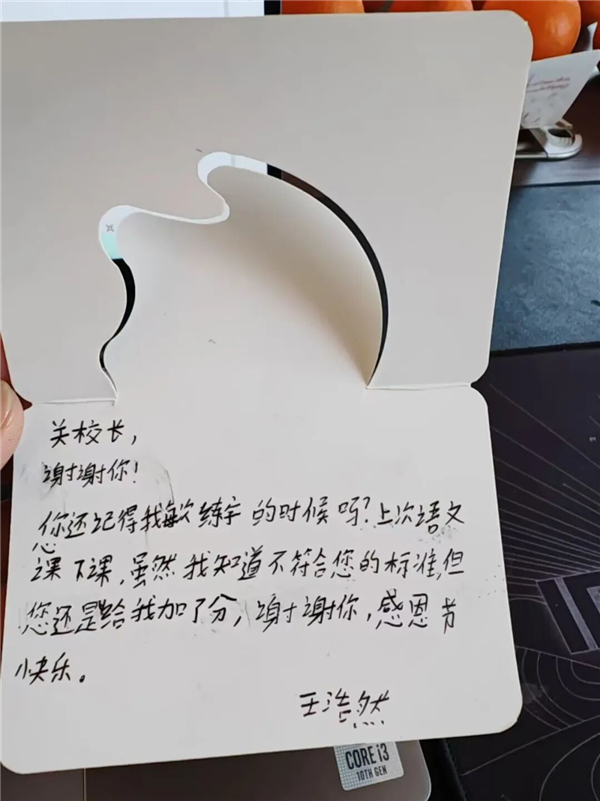 关校长，
谢谢你！
您还记得我敏练字的时候吗？上次语文
课下课，虽然我知道不符合您的标准，但
您还是给我加了分，谢谢你，感恩节
快乐。
王浩然
CORE i3
10TH GEN